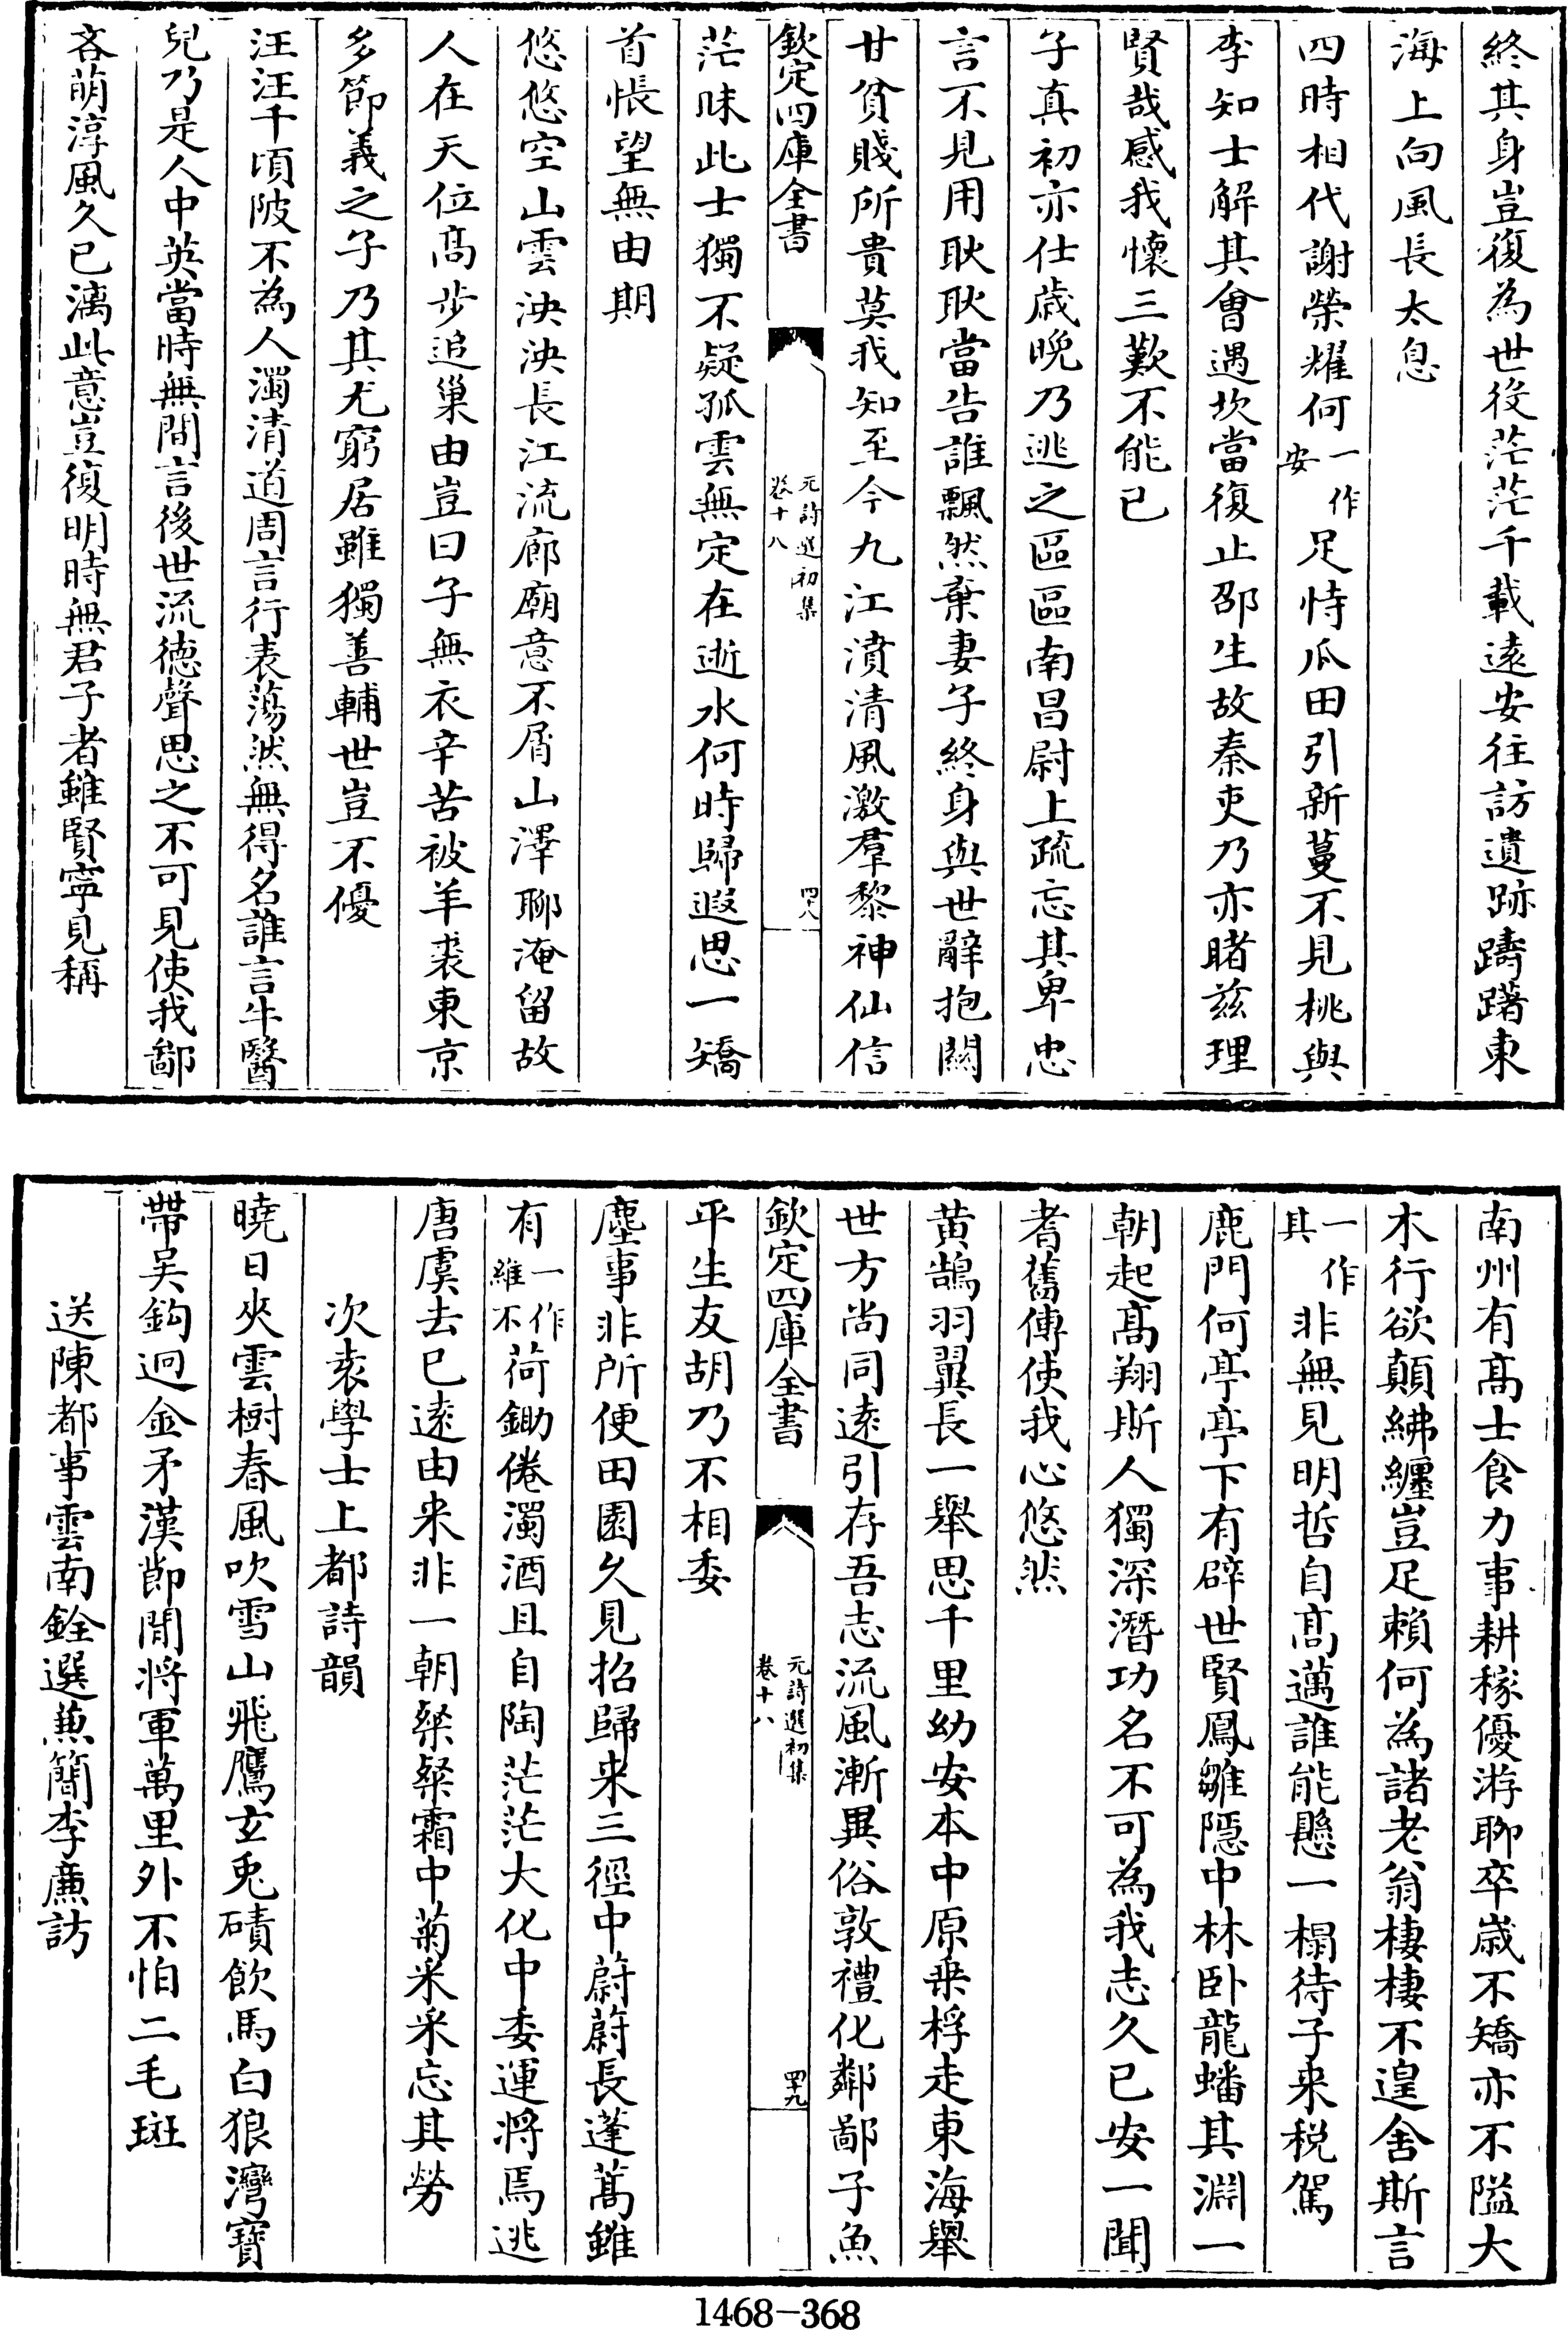 終其身豈復為世役茫茫千載遠安往訪遺跡躊躇東
海上向風長太息
四時相代謝榮耀何一作安足恃瓜田引新蔓不見桃與
李知士解其會遇坎當復止邵生故秦吏乃亦睹兹理
賢哉感我懷三歎不能已
子真初亦仕歳晚乃逃之區區南昌尉上疏忘其卑忠
言不見用耿耿當告誰飄然棄妻子終身與世辭抱關
甘貧賤所貴莫我知至今九江濆清風激羣黎神仙信
欽定四庫全書
元詩選初集
卷十八
四十八
茫昧此士獨不疑孤雲無定在逝水何時歸遐思一矯
首悵望無由期
悠悠空山雲泱泱長江流廊廟意不屑山澤聊淹留故
人在天位髙步追巢由豈曰子無衣辛苦被羊裘東京
多節義之子乃其尤窮居雖獨善輔世豈不優
汪汪千頃陂不為人濁清道周言行表蕩然無得名誰言牛醫
兒乃是人中英當時無間言後世流徳聲思之不可見使我鄙
吝萌淳風久已漓此意豈復明時無君子者雖賢寧見稱
南州有髙士食力事耕稼優游聊卒嵗不矯亦不隘大
木行欲顛紼纚豈足賴何為諸老翁棲棲不遑舍斯言
一作其非無見明哲自髙邁誰能懸一榻待子来税駕
鹿門何亭亭下有辟世賢鳳雛隱中林卧龍蟠其淵一
朝起髙翔斯人獨深潛功名不可為我志久已安一聞
耆舊傳使我心悠然
黄鵠羽翼長一舉思千里幼安本中原乗桴走東海舉
世方尚同逺引存吾志流風漸異俗敦禮化鄰鄙子魚
欽定四庫全書
元詩選初集
卷十八
四十九
平生友胡乃不相委
塵事非所便田園久見招歸来三徑中蔚蔚長蓬蒿雖
有一作雖不荷鋤倦濁酒且自陶茫茫大化中委運將焉逃
唐虞去已逺由来非一朝粲粲霜中菊采采忘其勞
次袁學士上都詩韻
曉日夾雲樹春風吹雪山飛鷹玄兎磧飲馬白狼灣寶
帶吴鈎迥金矛漢節閒將軍萬里外不怕二毛斑
送陳都事雲南銓選兼簡李亷訪
1468-368